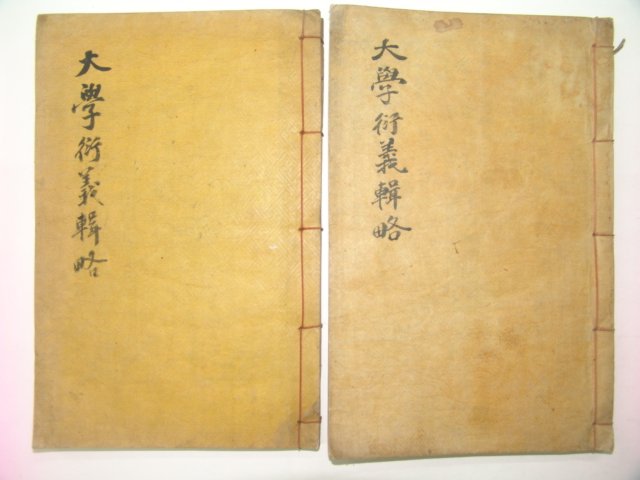 大學衍義輯略
大學衍義輯略